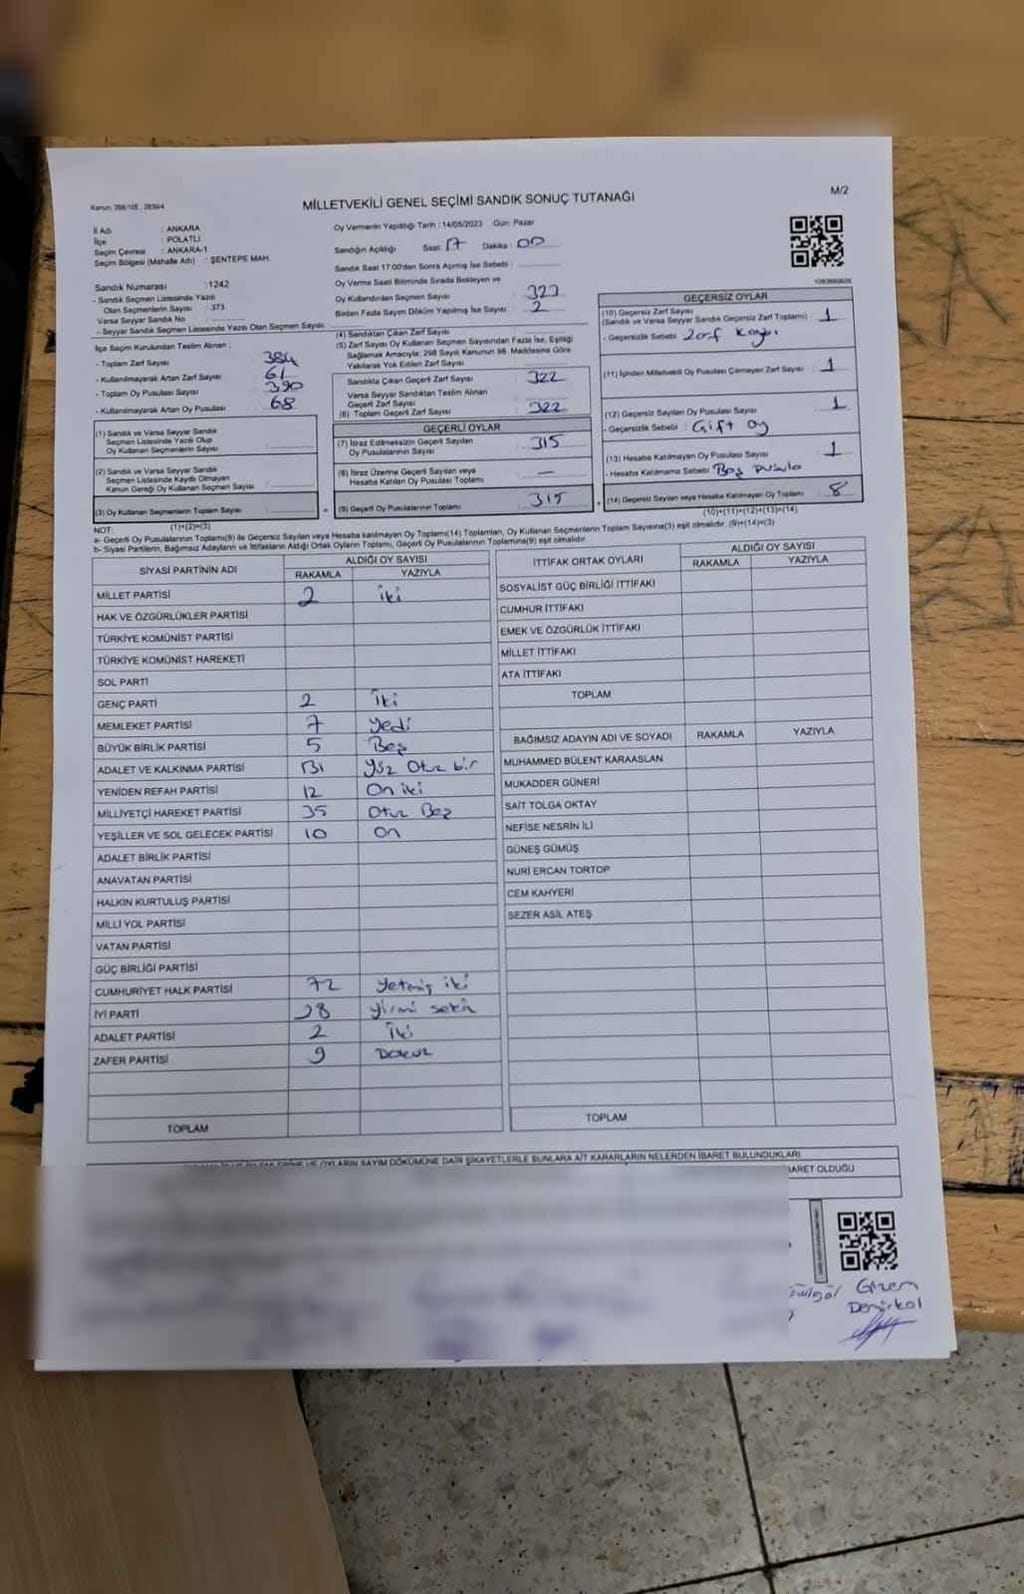 MİLLETVEKİLİ GENEL SEÇİMİ SANDIK SONUÇ TUTANAĞI
M/2
İl Adı : ANKARA
İlçe : POLATLI
Seçim Çevresi : ANKARA-1
Seçim Bölgesi (Mahalle Adı) : ŞENTEPE MAH.
Sandık Numarası :1242
- Sandık Seçmen Listesinde Yazılı
Olan Seçmenlerin Sayısı : 373
Varsa Seyyar Sandık No
- Seyyar Sandık Seçmen Listesinde Yazılı Olan Seçmen Sayısı
İlçe Seçim Kurulundan Teslim Alınan ;
- Toplam Zarf Sayısı 384
- Kullanılmayarak Artan Zarf Sayısı 61
- Toplam Oy Pusulası Sayısı 390
- Kullanılmayarak Artan Oy Pusulası 68
(1) Sandık ve Varsa Seyyar Sandık
Seçmen Listesinde Yazılı Olup
Oy Kullanan Seçmenlerin Sayısı
(2) Sandık ve Varsa Seyyar Sandık
Seçmen Listesinde Kaydı Olmayan
Kanun Gereği Oy Kullanan Seçmen Sayısı
(3) Oy Kullanan Seçmenlerin Toplam Sayısı
(1)+(2)=(3)
Oy Vermenin Yapıldığı Tarih : 14/05/2023 Gün: Pazar
Sandığın Açıldığı Saat: 17 Dakika : 00
Sandık Saat 17:00'den Sonra Açılmış İse Sebebi :
Oy Verme Saati Bitiminde Sırada Bekleyen ve
Oy Kullandırılan Seçmen Sayısı 323
Birden Fazla Sayım Döküm Yapılmış İse Sayısı 2
(4) Sandıktan Çıkan Zarf Sayısı
(5) Zarf Sayısı Oy Kullanan Seçmen Sayısından Fazla İse, Eşitliği
Sağlamak Amacıyla; 298 Sayılı Kanunun 98. Maddesine Göre
Yakılarak Yok Edilen Zarf Sayısı
Sandıkta Çıkan Geçerli Zarf Sayısı 322
Varsa Seyyar Sandıktan Teslim Alınan
Geçerli Zarf Sayısı
(6) Toplam Geçerli Zarf Sayısı 322
GEÇERLİ OYLAR
(7) İtiraz Edilmeksizin Geçerli Sayılan
Oy Pusulalarının Sayısı 315
(8) İtiraz Üzerine Geçerli Sayılan veya
Hesaba Katılan Oy Pusulası Toplamı —
(9) Geçerli Oy Pusulalarının Toplamı 315
GEÇERSİZ OYLAR
(10) Geçersiz Zarf Sayısı
(Sandık ve Varsa Seyyar Sandık Geçersiz Zarf Toplamı) : 1
- Geçersizlik Sebebi Zarf Kaybı
(11) İçinden Milletvekili Oy Pusulası Çıkmayan Zarf Sayısı : 1
(12) Geçersiz Sayılan Oy Pusulası Sayısı 1
- Geçersizlik Sebebi : Çift oy
(13) Hesaba Katılmayan Oy Pusulası Sayısı 1
- Hesaba Katılmama Sebebi Boş pusula
(14) Geçersiz Sayılan veya Hesaba Katılmayan Oy Toplamı 8
(10)+(11)+(12)+(13)=(14)
NOT:
a- Geçerli Oy Pusulalarının Toplamı(9) ile Geçersiz Sayılan veya Hesaba katılmayan Oy Toplamı(14) Toplamları, Oy Kullanan Seçmenlerin Toplam Sayısına(3) eşit olmalıdır. (9)+(14)=(3)
b- Siyasi Partilerin, Bağımsız Adayların ve İttifakların Aldığı Ortak Oyların Toplamı, Geçerli Oy Pusulalarının Toplamına(9) eşit olmalıdır.
SİYASİ PARTİNİN ADI ALDIĞI OY SAYISI
RAKAMLA YAZIYLA
MİLLET PARTİSİ 2 iki
HAK VE ÖZGÜRLÜKLER PARTİSİ
TÜRKİYE KOMÜNİST PARTİSİ
TÜRKİYE KOMÜNİST HAREKETİ
SOL PARTİ
GENÇ PARTİ 2 İki
MEMLEKET PARTİSİ 7 yedi
BÜYÜK BİRLİK PARTİSİ 5 Beş
ADALET VE KALKINMA PARTİSİ 131 yüz Otuz bir
YENİDEN REFAH PARTİSİ 12 On iki
MİLLİYETÇİ HAREKET PARTİSİ 35 Otuz Beş
YEŞİLLER VE SOL GELECEK PARTİSİ 10 On
ADALET BİRLİK PARTİSİ
ANAVATAN PARTİSİ
HALKIN KURTULUŞ PARTİSİ
MİLLİ YOL PARTİSİ
VATAN PARTİSİ
GÜÇ BİRLİĞİ PARTİSİ
CUMHURİYET HALK PARTİSİ 72 Yetmiş iki
İYİ PARTİ 28 yirmi sekiz
ADALET PARTİSİ 2 İki
ZAFER PARTİSİ 9 Dokuz
TOPLAM
İTTİFAK ORTAK OYLARI ALDIĞI OY SAYISI
RAKAMLA YAZIYLA
SOSYALİST GÜÇ BİRLİĞİ İTTİFAKI
CUMHUR İTTİFAKI
EMEK VE ÖZGÜRLÜK İTTİFAKI
MİLLET İTTİFAKI
ATA İTTİFAKI
TOPLAM
BAĞIMSIZ ADAYIN ADI VE SOYADI RAKAMLA YAZIYLA
MUHAMMED BÜLENT KARAASLAN
MUKADDER GÜNERİ
SAİT TOLGA OKTAY
NEFİSE NESRİN İLİ
GÜNEŞ GÜMÜŞ
NURİ ERCAN TORTOP
CEM KAHYERİ
SEZER ASİL ATEŞ
TOPLAM
OYLARIN SAYIM DÖKÜMÜNE DAİR ŞİKAYETLERLE BUNLARA AİT KARARLARIN NELERDEN İBARET BULUNDUKLARI
OLDUĞU
Gizem
Demirkol